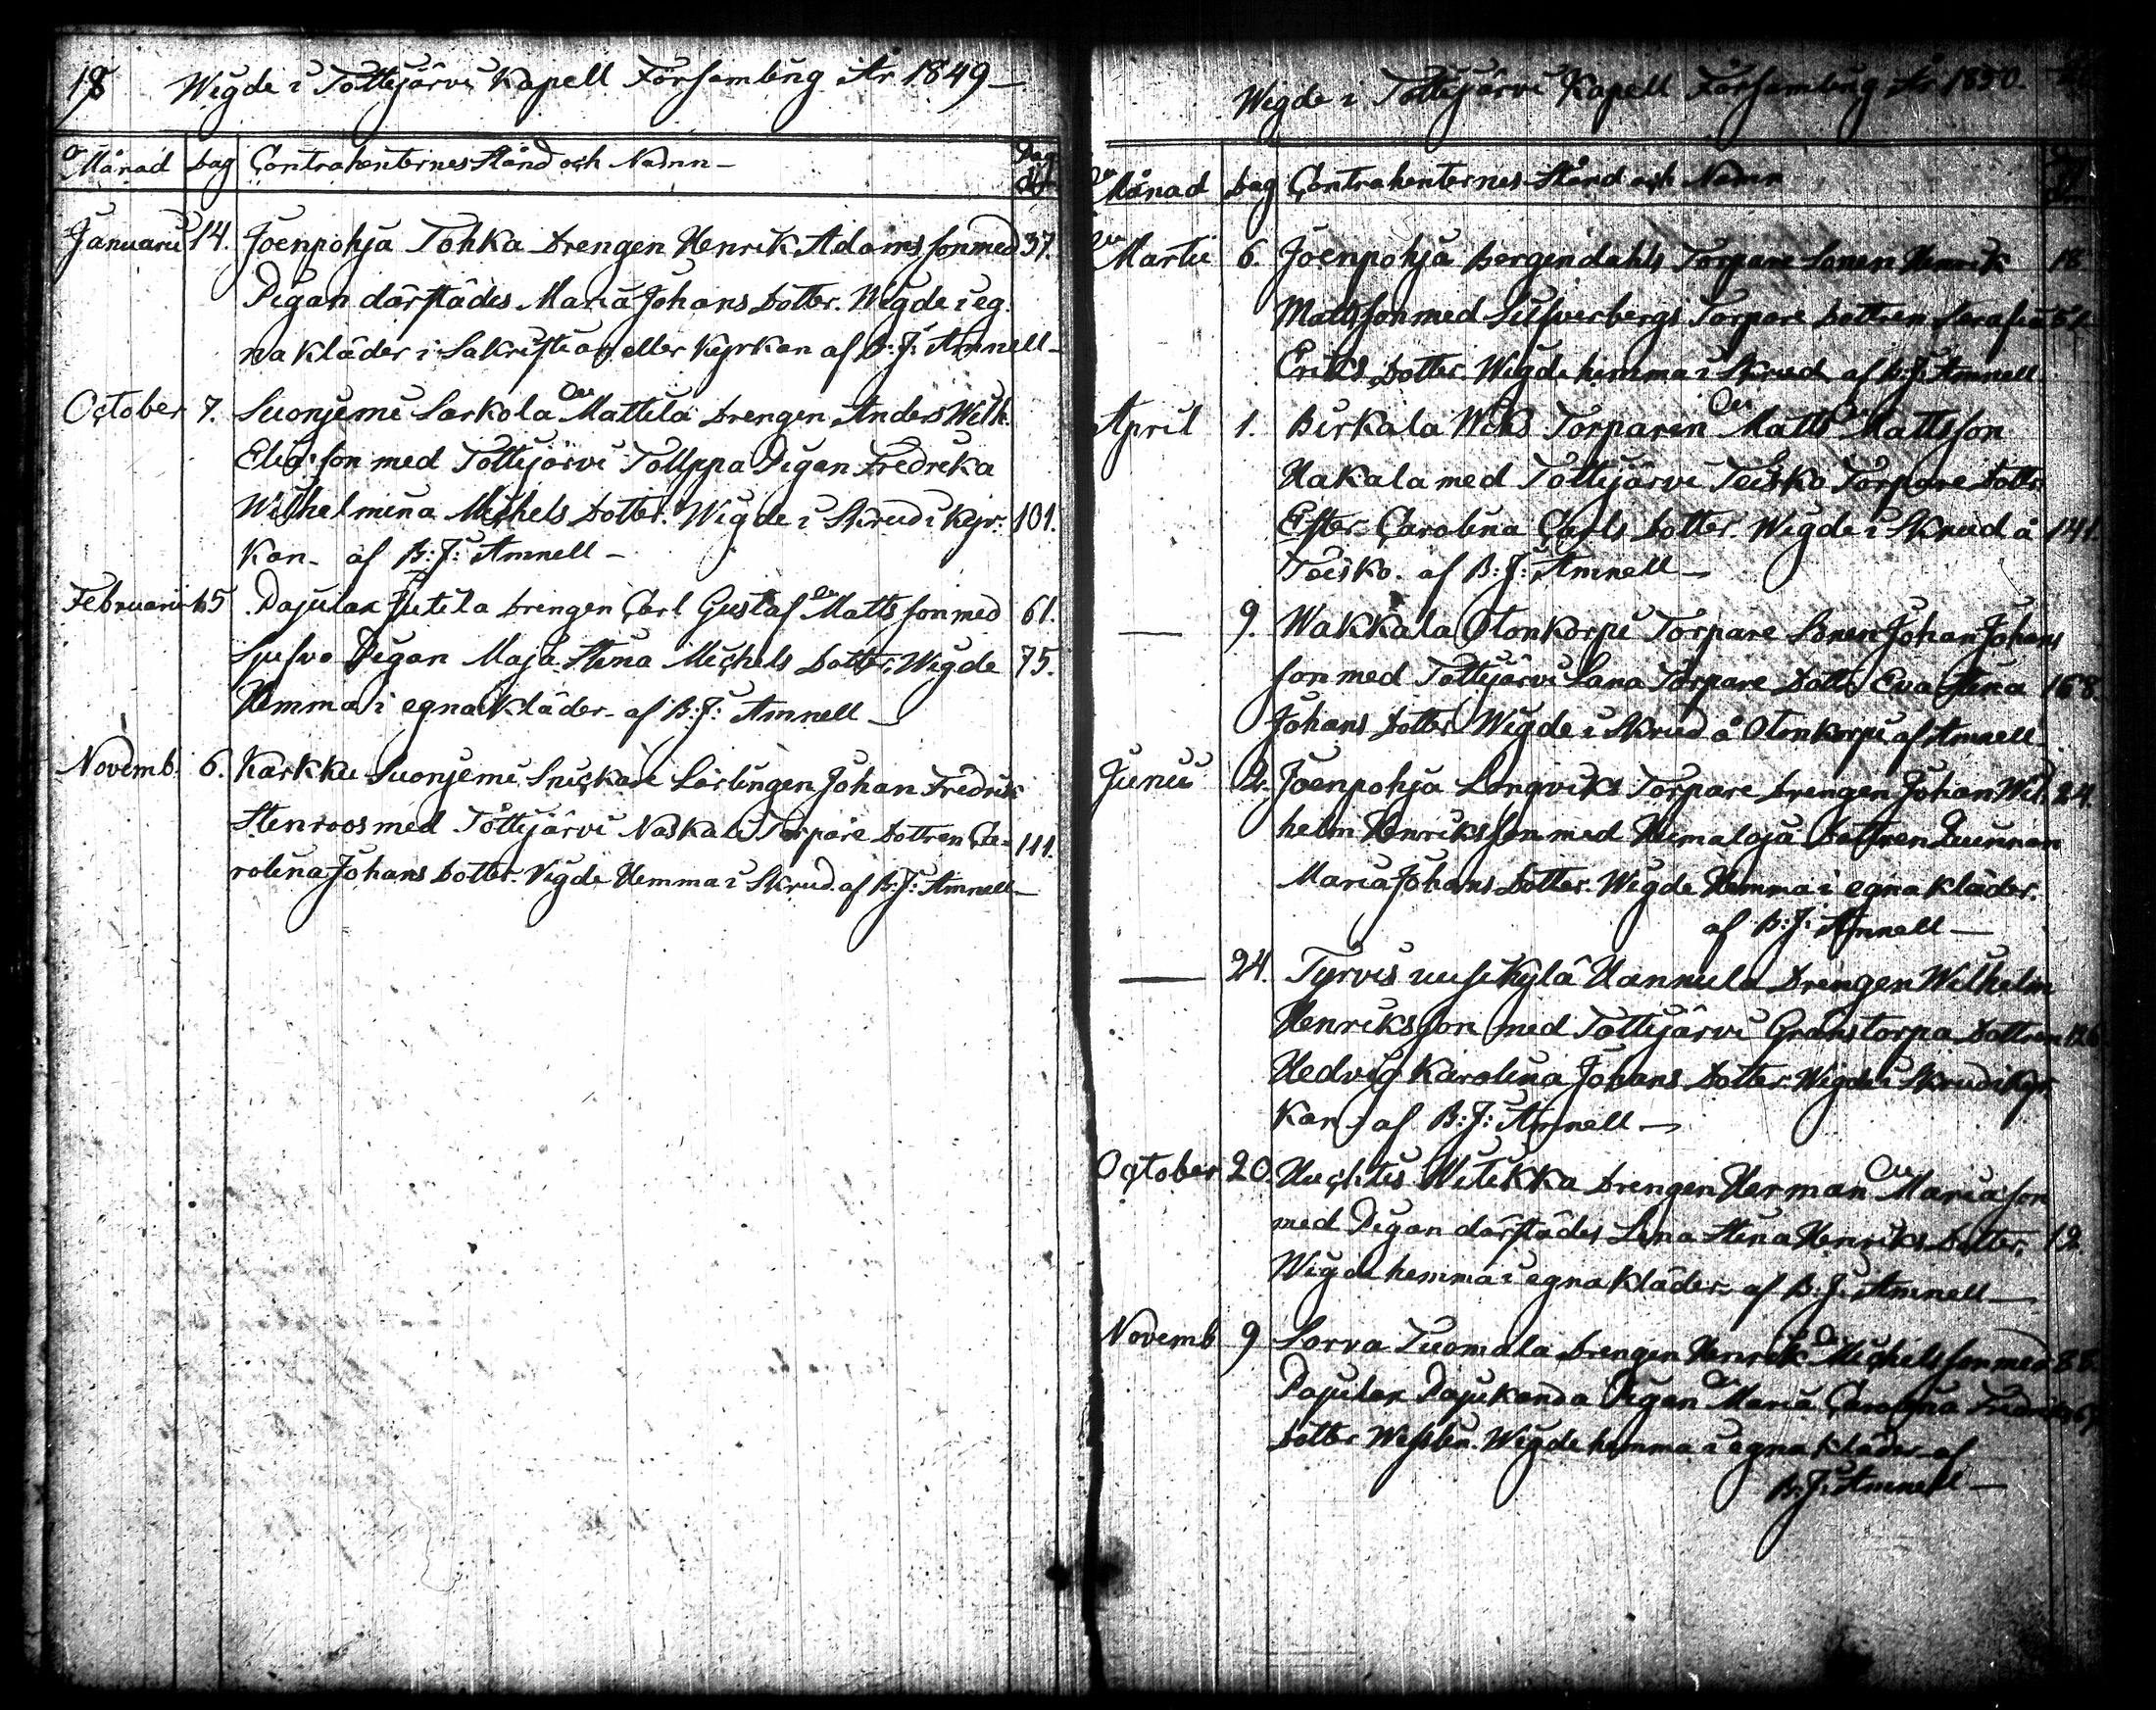 18 Wigde i Tottijärvi Kapell Församling År 1849 —
Månad Dag Contrahenternes Stånd och Namn —
Januarii 14. Joenpohja Tohka Drengen Henrik Adamsson med 37.
Pigan därstädes Maria Johans Dotter. Wigde i eg
na kläder i Sakristian eller kyrkan af B: J: Amnell —
October 7. Suonjemi Sarkola Mattila Drengen Anders Wilh.
Eliæson med Tottijärvi Tolppa Pigan Fredrika
Wilhelmina Michels Dotter. Wigde i Skrud i Kyr: 101.
kan — af B: J: Amnell —
Februarii 15 Pajulax Jutila Drengen Carl Gustaf Mattsson med 61.
Pigan Maja Stina Michels Dotter, Wigde 75.
Hemma i egna kläder — af B: J: Amnell —
Novemb. 6. Karkku Suonjemi Snickare Lärlingen Johan Fredrik
Stenroos med Tottijärvi Naskali Torpare Dottren Ca- 111.
rolina Johans Dotter. Vigde Hemma i Skrud. af B: J: Amnell —
Wigde i Tottijärvi Kapell Församling År 1850 —
Månad Dag Contrahenternes Stånd och Namn
Martii 6. Joenpohja Bergendahls Torpare Sonen Henrik 18.
Mattsson med Silfverbergs Torpare Dottren Sarafia
Eriks Dotter. Wigde hemma i Skrud af B: J: Amnell
April 1. Birkala Torparen Matts Mattsson
Hakala med Tottijärvi Teisko Torpare Dottr.
Ester Carolina Carls Dotter. Wigde i Skrud å 141.
Teisko. af B: J: Amnell —
— 9. Wakkala Otonkorpi Torpare Sonen Johan Johans
son med Tottijärvi Lana Torpare Dottr. Eva Stina 168.
Johans Dotter Wigde i Skrud å Otonkorpi af Amnell —
Junii 2. Joenpohja Lonqviks Torpare Drengen Johan Wil. 24.
helm Henriksson med Heimalaja Dottren
Maria Johans Dotter. Wigde Hemma i egna kläder.
af B: J: Amnell —
— 24. Tyrvis uusikylä Hannula Drengen Wilhelm
Henriksson med Tottijärvi Granstorpa Dottren 126
Hedvig Karolina Johans Dotter. Wigde i Skrud i Kyr.
kan — af B: J: Amnell —
October 20. Huchtis Witikka Drengen Herman Mariæson
med Pigan därstädes Lena Stina Henriks Dotter, 12.
Wigde hemma i egna kläder — af B: J: Amnell —
Novemb 9 Sorva Tuomola Drengen Henrik Michelsson med 88.
Pajulax Pajukanda Pigan Maria Carolina Fredriks
Dotter Weslin. Wigde hemma i egna kläder af
B: J: Amnell —